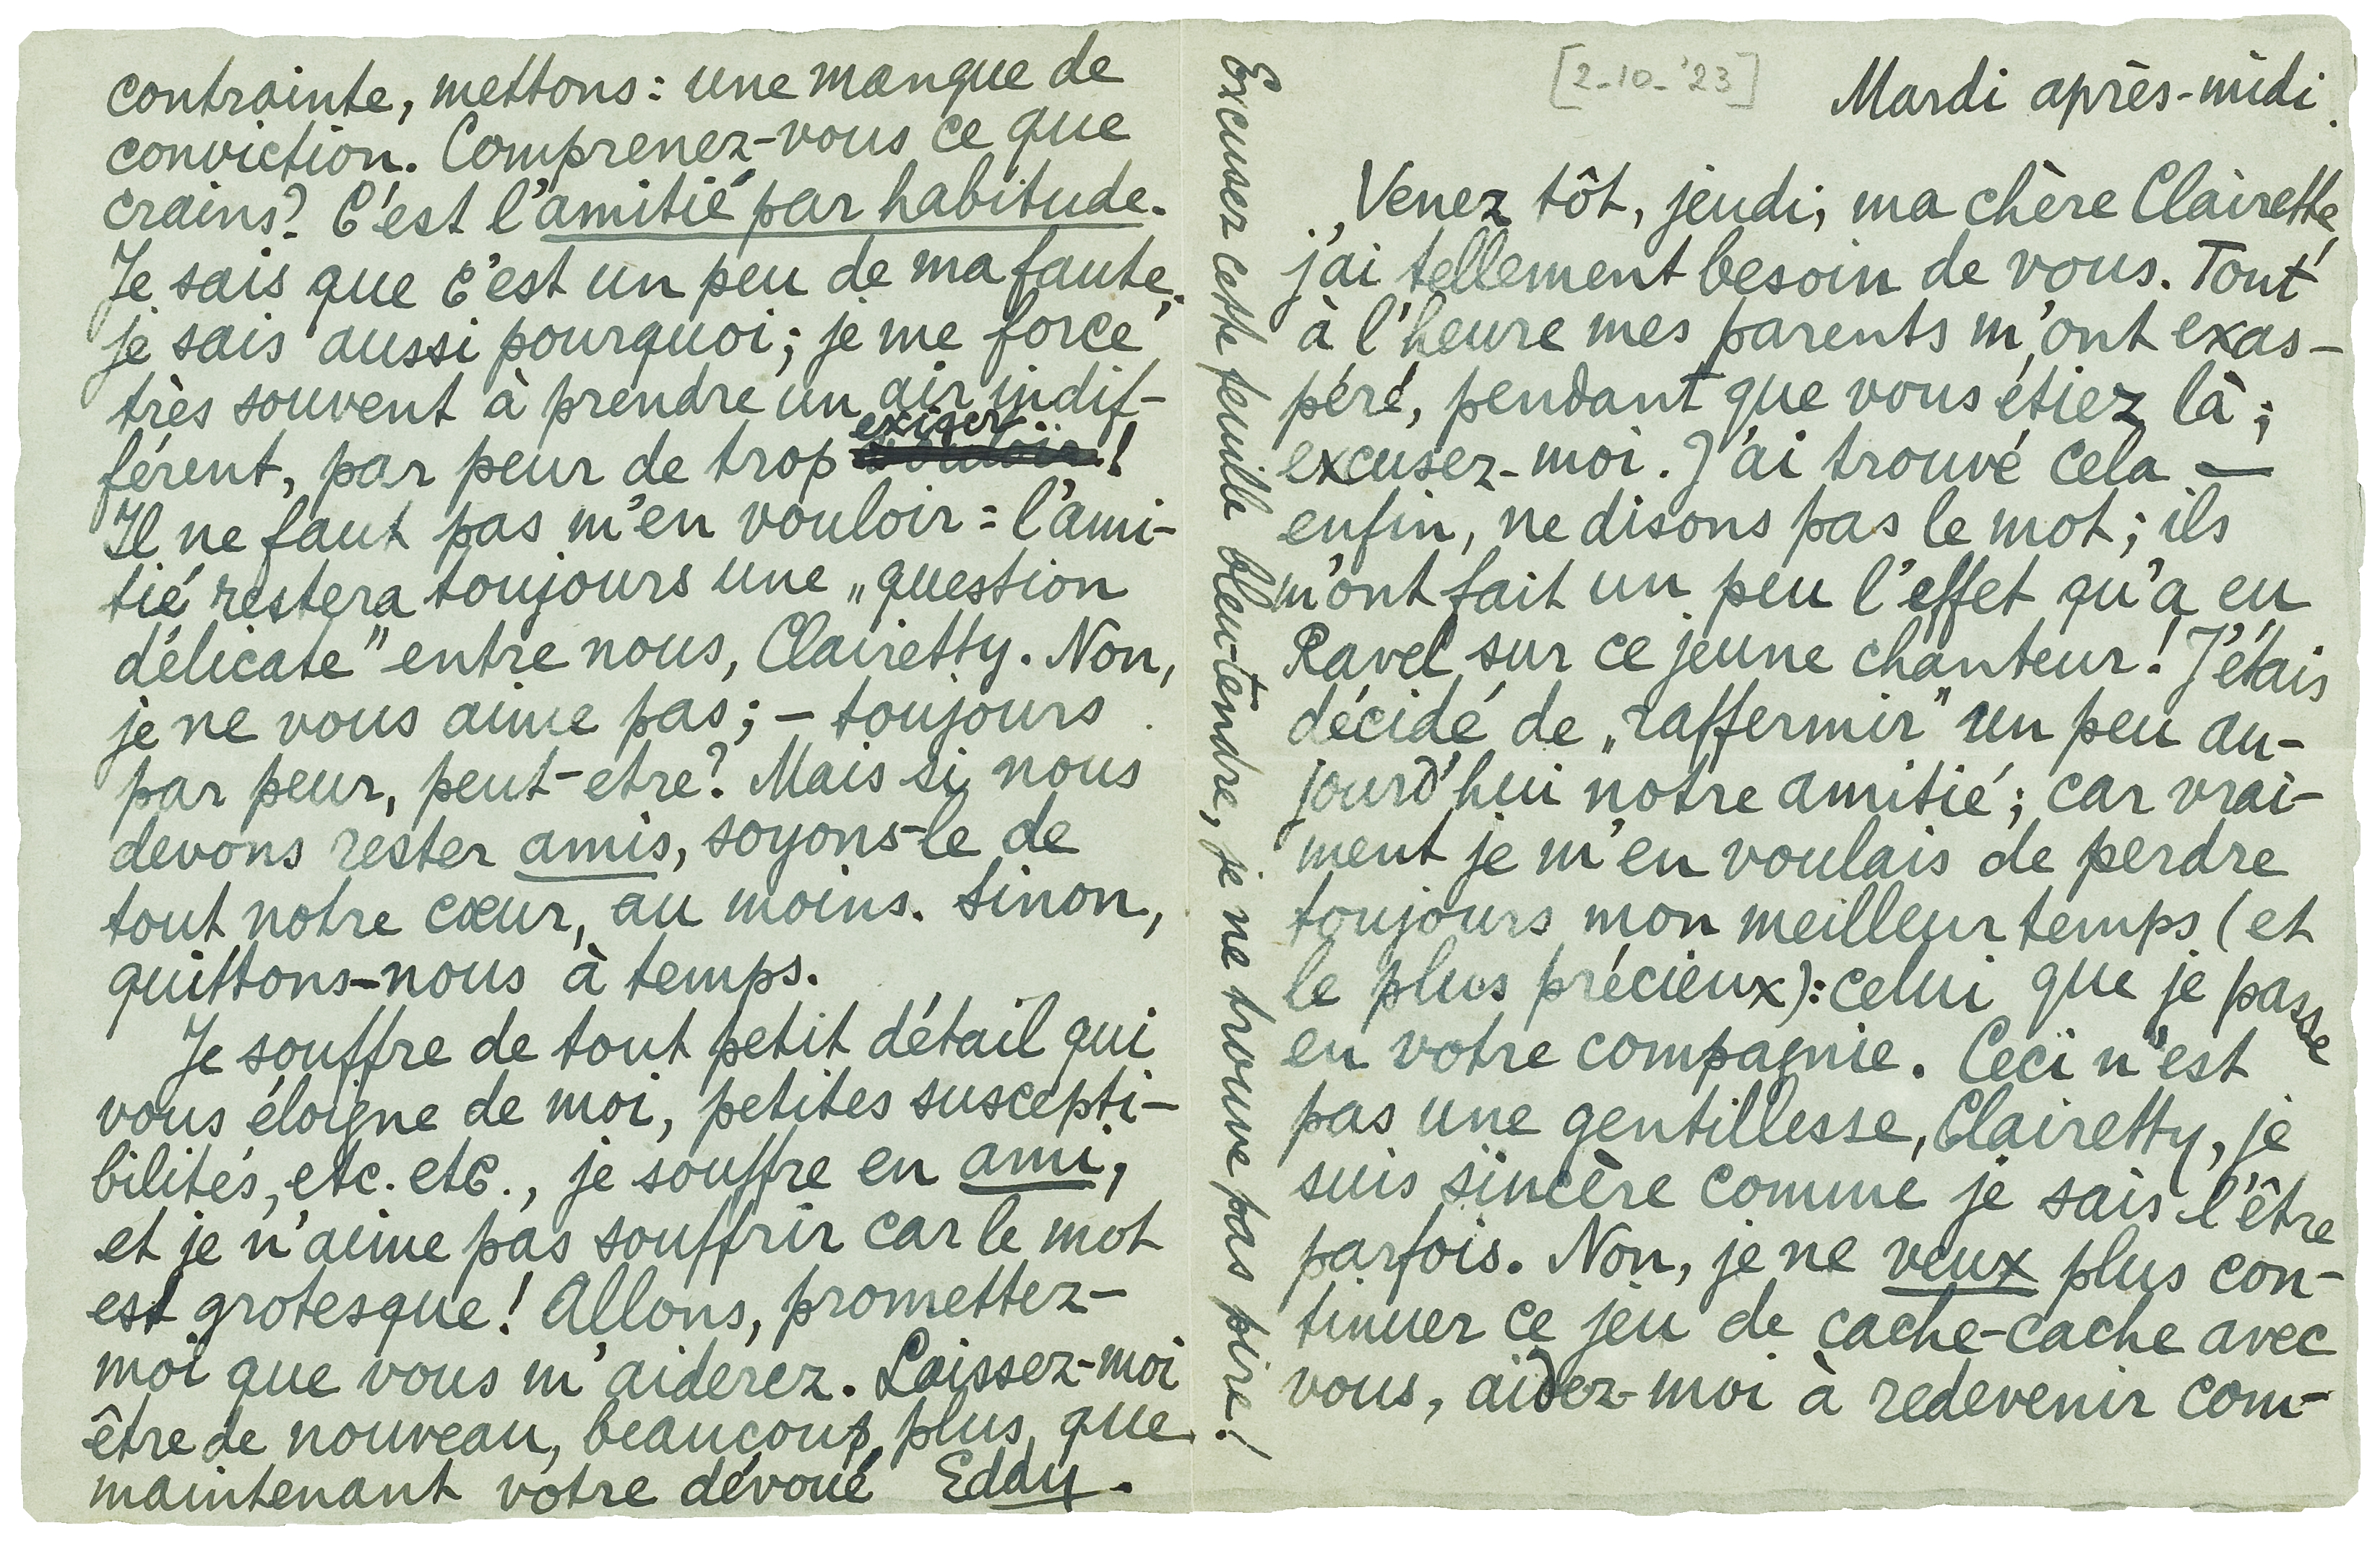 [2-10-'23]
Mardi après-midi.
Venez tôt, jeudi; ma chère Clairette,
j'ai tellement besoin de vous. Tout
à l'heure mes parents m'ont exas-
péré, pendant que vous étiez là;
excusez-moi. J'ai trouvé cela —
enfin, ne disons pas le mot; ils
m'ont fait un peu l'effet qu'a eu
Ravel sur ce jeune chanteur! J'étais
décidé de „raffermir" un peu au-
jourd'hui notre amitié; car vrai-
ment je m'en voulais de perdre
toujours mon meilleur temps (et
le plus précieux): celui que je passe
en votre compagnie. Ceci n'est
pas une gentillesse, Clairetty, je
suis sincère comme je sais l'être
parfois. Non, je ne veux plus con-
tinuer ce jeu de cache-cache avec
vous, aidez-moi à redevenir com-
Excusez cette feuille bleu-tendre, je ne trouve pas pire!
contrainte, mettons: une manque de
conviction. Comprenez-vous ce que
crains? C'est l'amitié par habitude.
Je sais que c'est un peu de ma faute;
je sais aussi pourquoi; je me force
très souvent à prendre un air indif-
férent, par peur de trop exiger!
Il ne faut pas m'en vouloir: l'ami-
tié restera toujours une „question
délicate" entre nous, Clairetty. Non,
je ne vous aime pas; – toujours
par peur, peut-etre? Mais si nous
devons rester amis, soyons-le de
tout notre cœur, au moins. Sinon,
quittons-nous à temps.
Je souffre de tout petit détail qui
vous éloigne de moi, petites suscepti-
bilités, etc. etc., je souffre en ami,
et je n'aime pas souffrir car le mot
est grotesque! Allons, promettez-
moi que vous m'aiderez. Laissez-moi
être de nouveau, beaucoup plus que
maintenant votre dévoué Eddy.